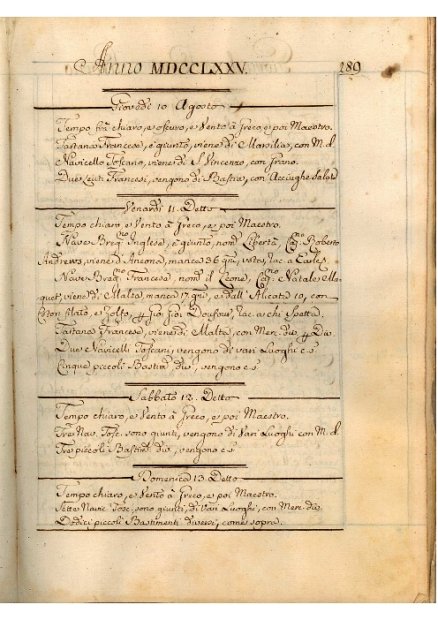 Anno MDCCLXXV. 189
Giovedì 10 Agosto
Tempo frà chiaro, e oscuro, e Vento à Greco, e poi Maestro.
Tartana Francese, è giunta, viene di Marsilia, con M. d.
Navicello Toscano, viene di S. Vincenzo, con Grano.
Due Leuti Francesi, vengono di Bastia, con Acciughe Salate
Venardì 11. Detto
Tempo chiaro, e Vento à Greco, e poi Maestro.
Nave Breq.no Inglese, è giunto, nom.o Libertà, Cap. Roberto
Andrews, viene di Ancona, manca 36 gni, vota, rac. a
Nave Breq.no Francese, nom. il Leone, Cap. Natale Ma-
quet, viene di Malta, manca 17 gni, e dall' Alicata 10, con
Coton filato, e Zolfo, rac. a chi Spetta.
Tartana Francese, viene di Malta, con Mer. div.
Due Navicelli Toscani, vengono di vari Luoghi c. s.
Cinque piccoli Bastim. div., vengono c. s.
Sabbato 12. Detto
Tempo chiaro, e Vento à Greco, e poi Maestro.
Tre Nav. Tosc. sono giunti, vengono di Vari Luoghi con M. d.
Tre piccoli Bastim. div., vengono c. s.
Domenica 13. Detto
Tempo chiaro, e Vento à Greco, e poi Maestro.
Sette Navic. Tosc. sono giunti, di Vari Luoghi, con Mer. div.
Dodici piccoli Bastimenti diversi, come sopra.